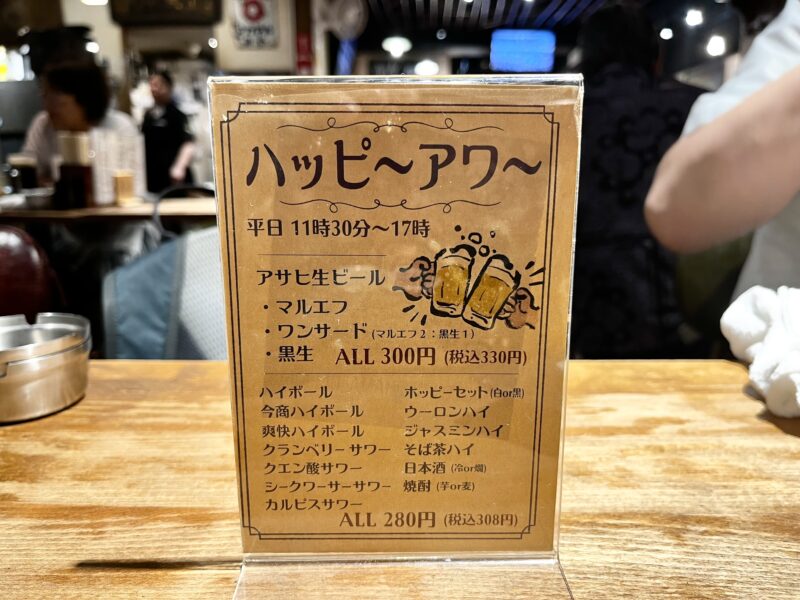 ハッピ〜アワ〜
平日 11時30分〜17時
アサヒ生ビール
・マルエフ
・ワンサード(マルエフ2:黒生1)
・黒生 ALL 300円 (税込330円)
ハイボール ホッピーセット(白or黒)
今商ハイボール ウーロンハイ
爽快ハイボール ジャスミンハイ
クランベリーサワー そば茶ハイ
クエン酸サワー 日本酒 (冷or燗)
シークワーサーサワー 焼酎 (芋or麦)
カルピスサワー
ALL 280円 (税込308円)